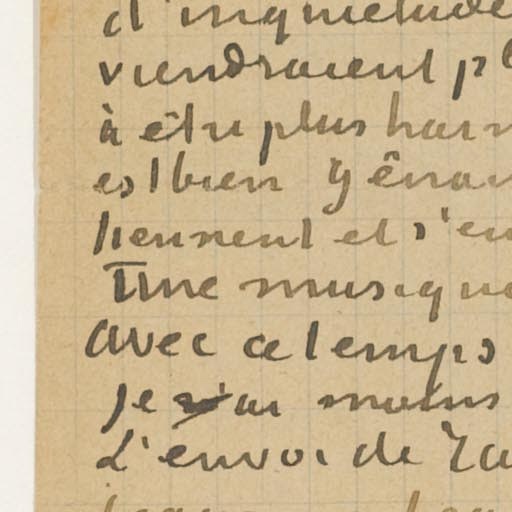 d'inquiétude
viendraient pl
à être plus harm
est bien gênan
tiennent et s'en
Une musique
avec ce temps
je n'ai moins
L'envoi de